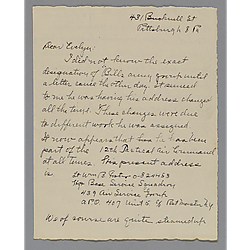 431 Bucknell St
Pittsburgh 8 Pa
Dear Evelyn:
I did not know the exact
designation of Bill's army group until
a letter came the other day. It seemed
to me he was having his address changed
all the time. These changes were due
to different work he was assigned.
It now appears that he has been
part of the 12th Tactical Air Command
at all times. His present address
is Lt Wm B
Base Service Squadron
439 Air Service Group
APO 407 Unit 1 % Postmaster NY
We of course are quite steamed up